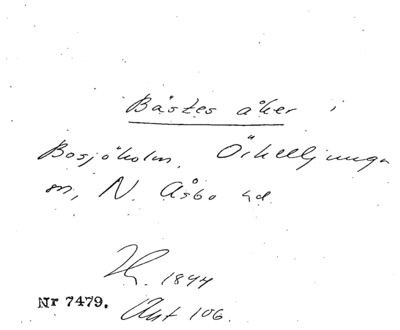 Båstes åker i
Bosjöholm, Örkelljunga
sn, N. Åsbo hd
H. 1844
Nr 7479.
Akt 106.